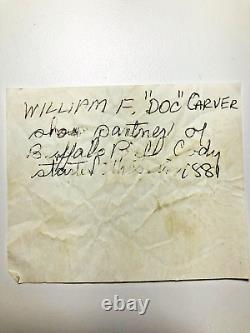 WILLIAM F. "DOC" CARVER
show partner of
Buffalo Bill Cody
started this in 1881
ebay